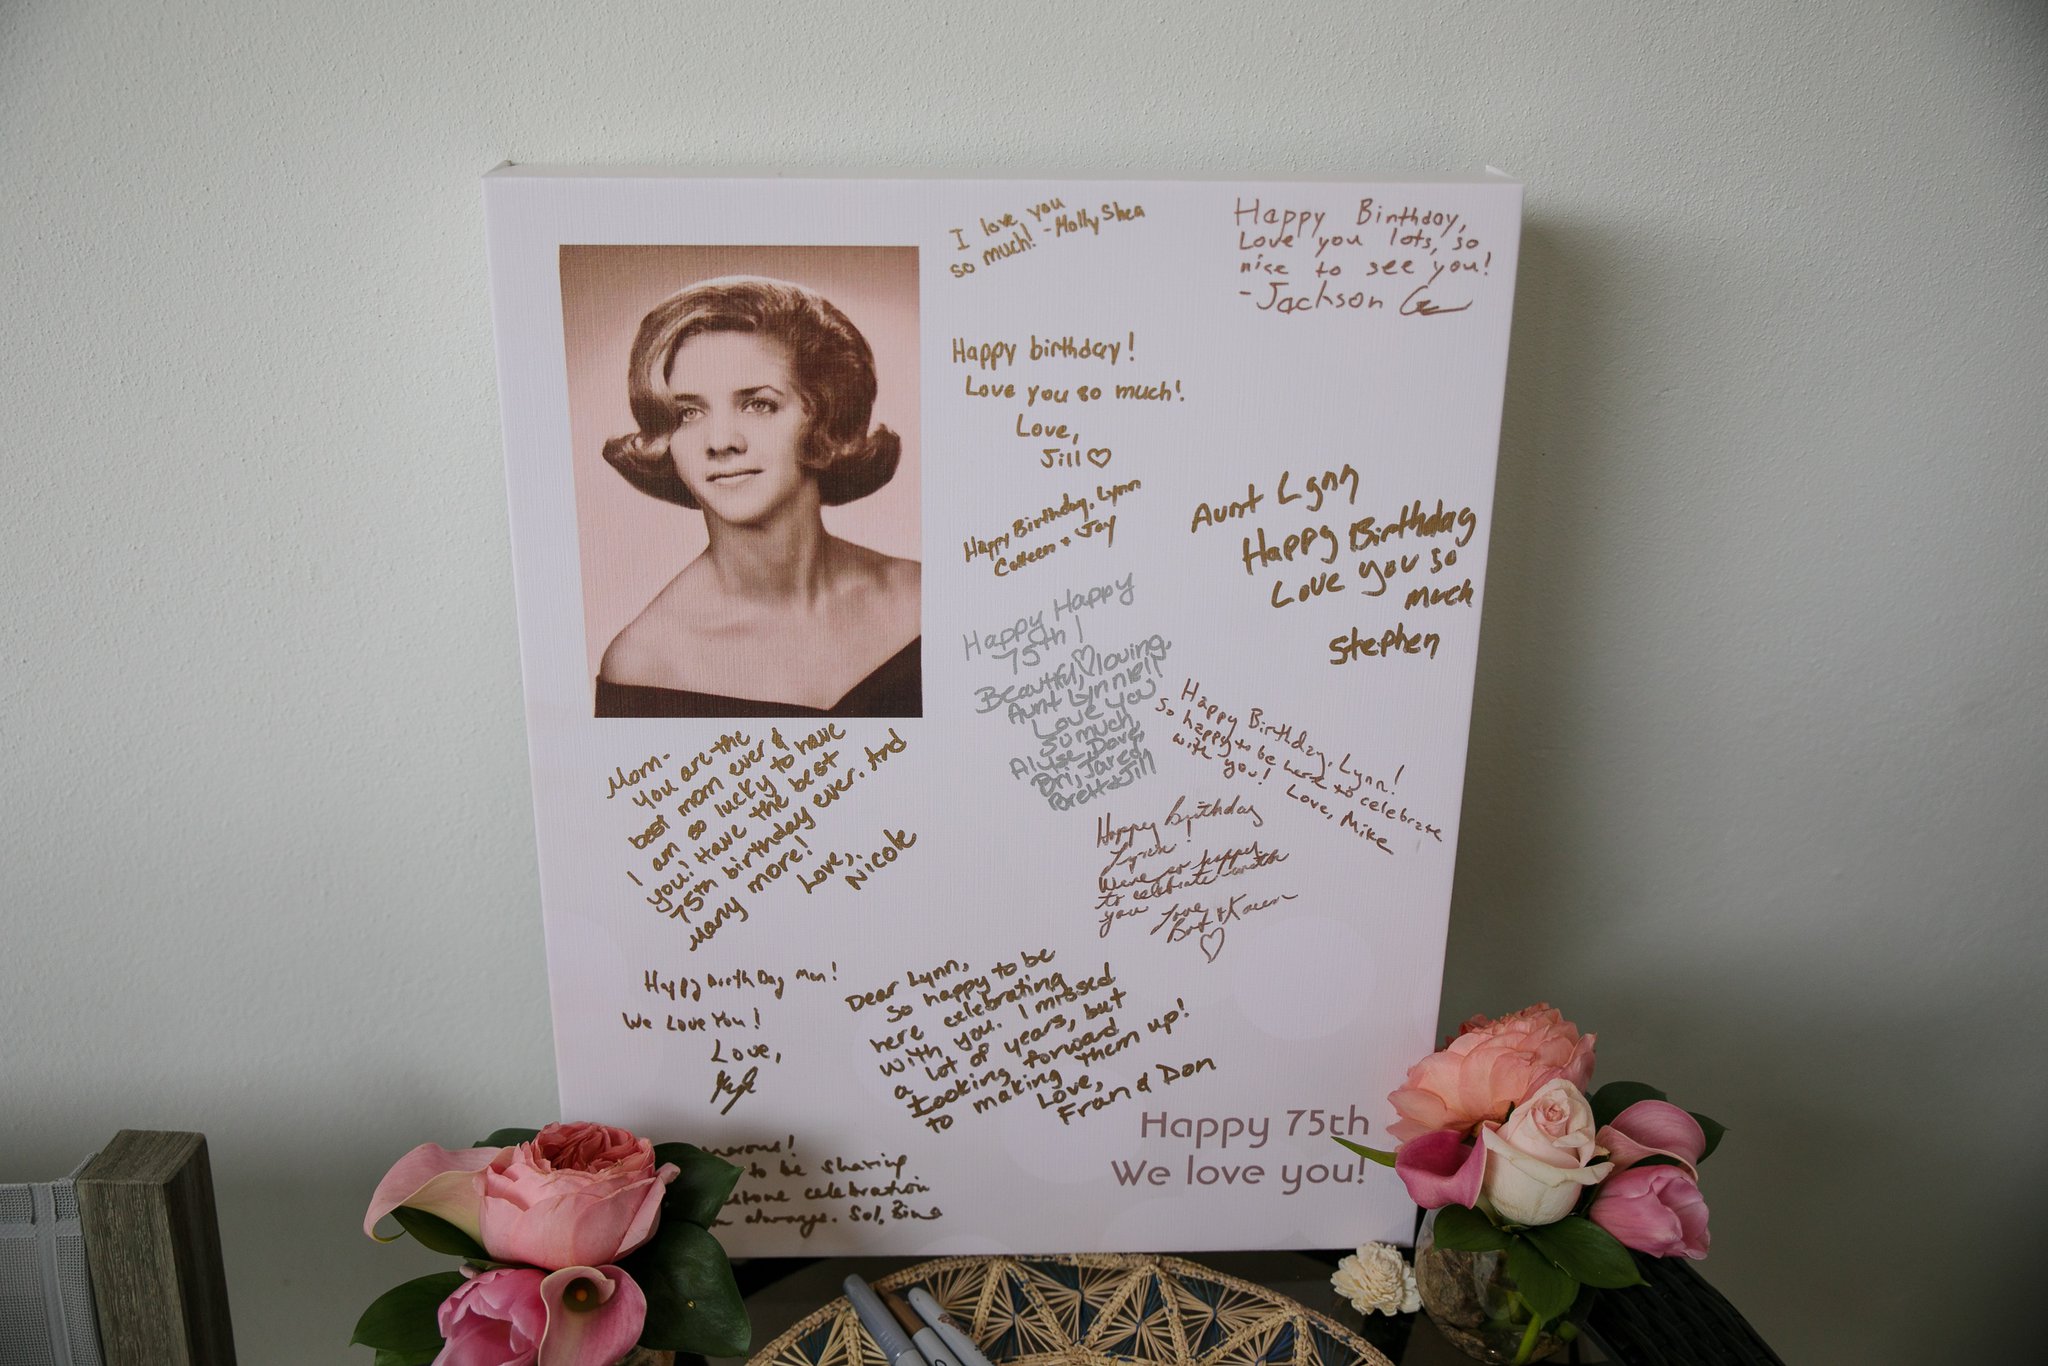 I love you
so much! -Molly Shea
Happy Birthday,
Love you lots, so
nice to see you!
-Jackson
Happy birthday!
Love you so much!
Love,
Jill♡
Happy Birthday, Lynn
Colleen + Jay
Aunt Lynn
Happy Birthday
Love you so
much
Stephen
Happy Happy
75th!
Beautiful, loving,
Aunt Lynnie!!
Love you
so much,
Alyse, Dave,
Bri, Jared,
Brett + Jill
Happy Birthday, Lynn!
So happy to be here to celebrate
with you! Love, Mike
Happy Birthday
Lynn!
We're so happy
to celebrate with
you Love,
+ Karen
♡
Mom-
You are the
best mom ever &
I am so lucky to have
you! Have the best
75th birthday ever. And
many more!
Love,
Nicole
Happy Birthday Mom!
We Love You!
Love,
Kyle
Dear Lynn,
So happy to be
here celebrating
with you. I missed
a lot of years, but
Looking forward
to making them up!
Love,
Fran & Don
to be sharing
celebration
always. Sol, Bina
Happy 75th
We love you!